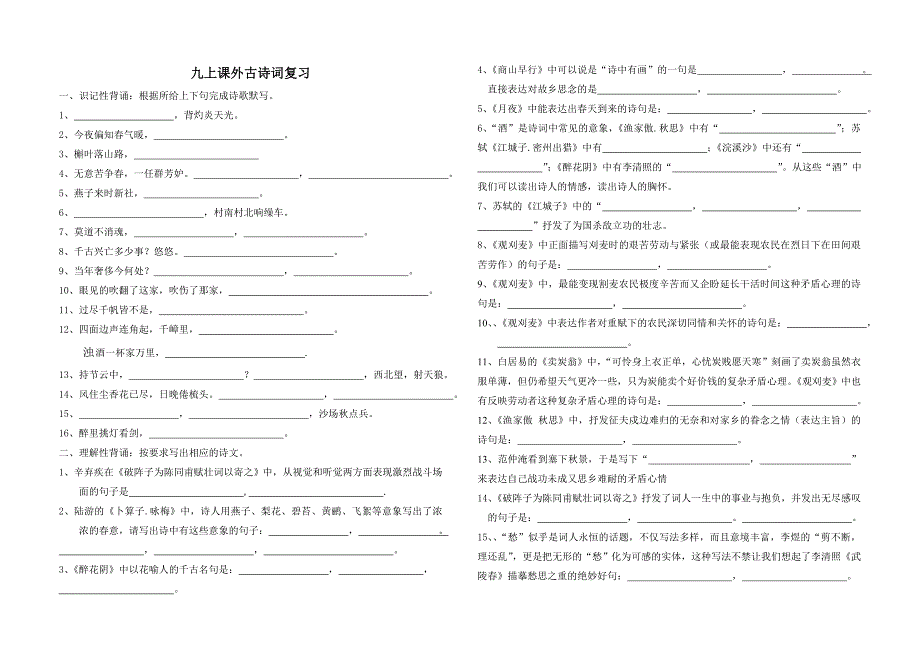 九上课外古诗词复习
一、识记性背诵：根据所给上下句完成诗歌默写。
1、____________________，背灼炎天光。
2、今夜偏知春气暖，____________________。
3、槲叶落山路，____________________
4、无意苦争春，一任群芳妒。____________________，____________________。
5、燕子来时新社，____________________。
6、____________________，村南村北响缲车。
7、莫道不消魂，____________________，____________________。
8、千古兴亡多少事？悠悠。____________________。
9、当年奢侈今何处？____________________，____________________。
10、眼见的吹翻了这家，吹伤了那家，____________________。
11、过尽千帆皆不是，____________________。
12、四面边声连角起，千嶂里，____________________。
浊酒一杯家万里，____________________.
13、持节云中，____________________？____________________，西北望，射天狼。
14、风住尘香花已尽，日晚倦梳头。____________________，____________________。
15、____________________，____________________，沙场秋点兵。
16、醉里挑灯看剑，____________________。
二、理解性背诵：按要求写出相应的诗文。
1、辛弃疾在《破阵子为陈同甫赋壮词以寄之》中，从视觉和听觉两方面表现激烈战斗场
面的句子是____________________,____________________.
2、陆游的《卜算子.咏梅》中，诗人用燕子、梨花、碧苔、黄鹂、飞絮等意象写出了浓
浓的春意，请写出诗中有这些意象的句子：____________________，____________________。
____________________，____________________，____________________。
3、《醉花阴》中以花喻人的千古名句是：____________________，____________________，
____________________。
4、《商山早行》中可以说是“诗中有画”的一句是____________________，____________________。
直接表达对故乡思念的是____________________，____________________。
5、《月夜》中能表达出春天到来的诗句是：____________________，____________________。
6、“酒”是诗词中常见的意象，《渔家傲.秋思》中有“____________________”；苏
轼《江城子.密州出猎》中有____________________;《浣溪沙》中还有“____________________
____________________”;《醉花阴》中有李清照的“____________________”。从这些“酒”中
我们可以读出诗人的情感，读出诗人的胸怀。
7、苏轼的《江城子》中的“____________________，____________________，____________________
____________________”抒发了为国杀敌立功的壮志。
8、《观刈麦》中正面描写刈麦时的艰苦劳动与紧张（或最能表现农民在烈日下在田间艰
苦劳作）的句子是：____________________，____________________。
9、《观刈麦》中，最能变现割麦农民极度辛苦而又企盼延长干活时间这种矛盾心理的诗
句是：____________________，____________________。
10、、《观刈麦》中表达作者对重赋下的农民深切同情和关怀的诗句是：____________________，
____________________。
11、白居易的《卖炭翁》中，“可怜身上衣正单，心忧炭贱愿天寒”刻画了卖炭翁虽然衣
服单薄，但仍希望天气更冷一些，只为炭能卖个好价钱的复杂矛盾心理。《观刈麦》中也
有反映劳动者这种复杂矛盾心理的诗句是：____________________，____________________。
12、《渔家傲 秋思》中，抒发征夫戍边难归的无奈和对家乡的眷念之情（表达主旨）的
诗句是：____________________，____________________。
13、范仲淹看到塞下秋景，于是写下“____________________，____________________”
来表达自己战功未成又思乡难耐的矛盾心情
14、《破阵子为陈同甫赋壮词以寄之》抒发了词人一生中的事业与抱负，并发出无尽感叹
的句子是：____________________，____________________。____________________。
15、、“愁”似乎是词人永恒的话题，不仅写法多样，而且意境丰富，李煜的“剪不断，
理还乱”，更是把无形的“愁”化为可感的实体，这种写法不禁让我们想起了李清照《武
陵春》描摹愁思之重的绝妙好句：____________________，____________________。